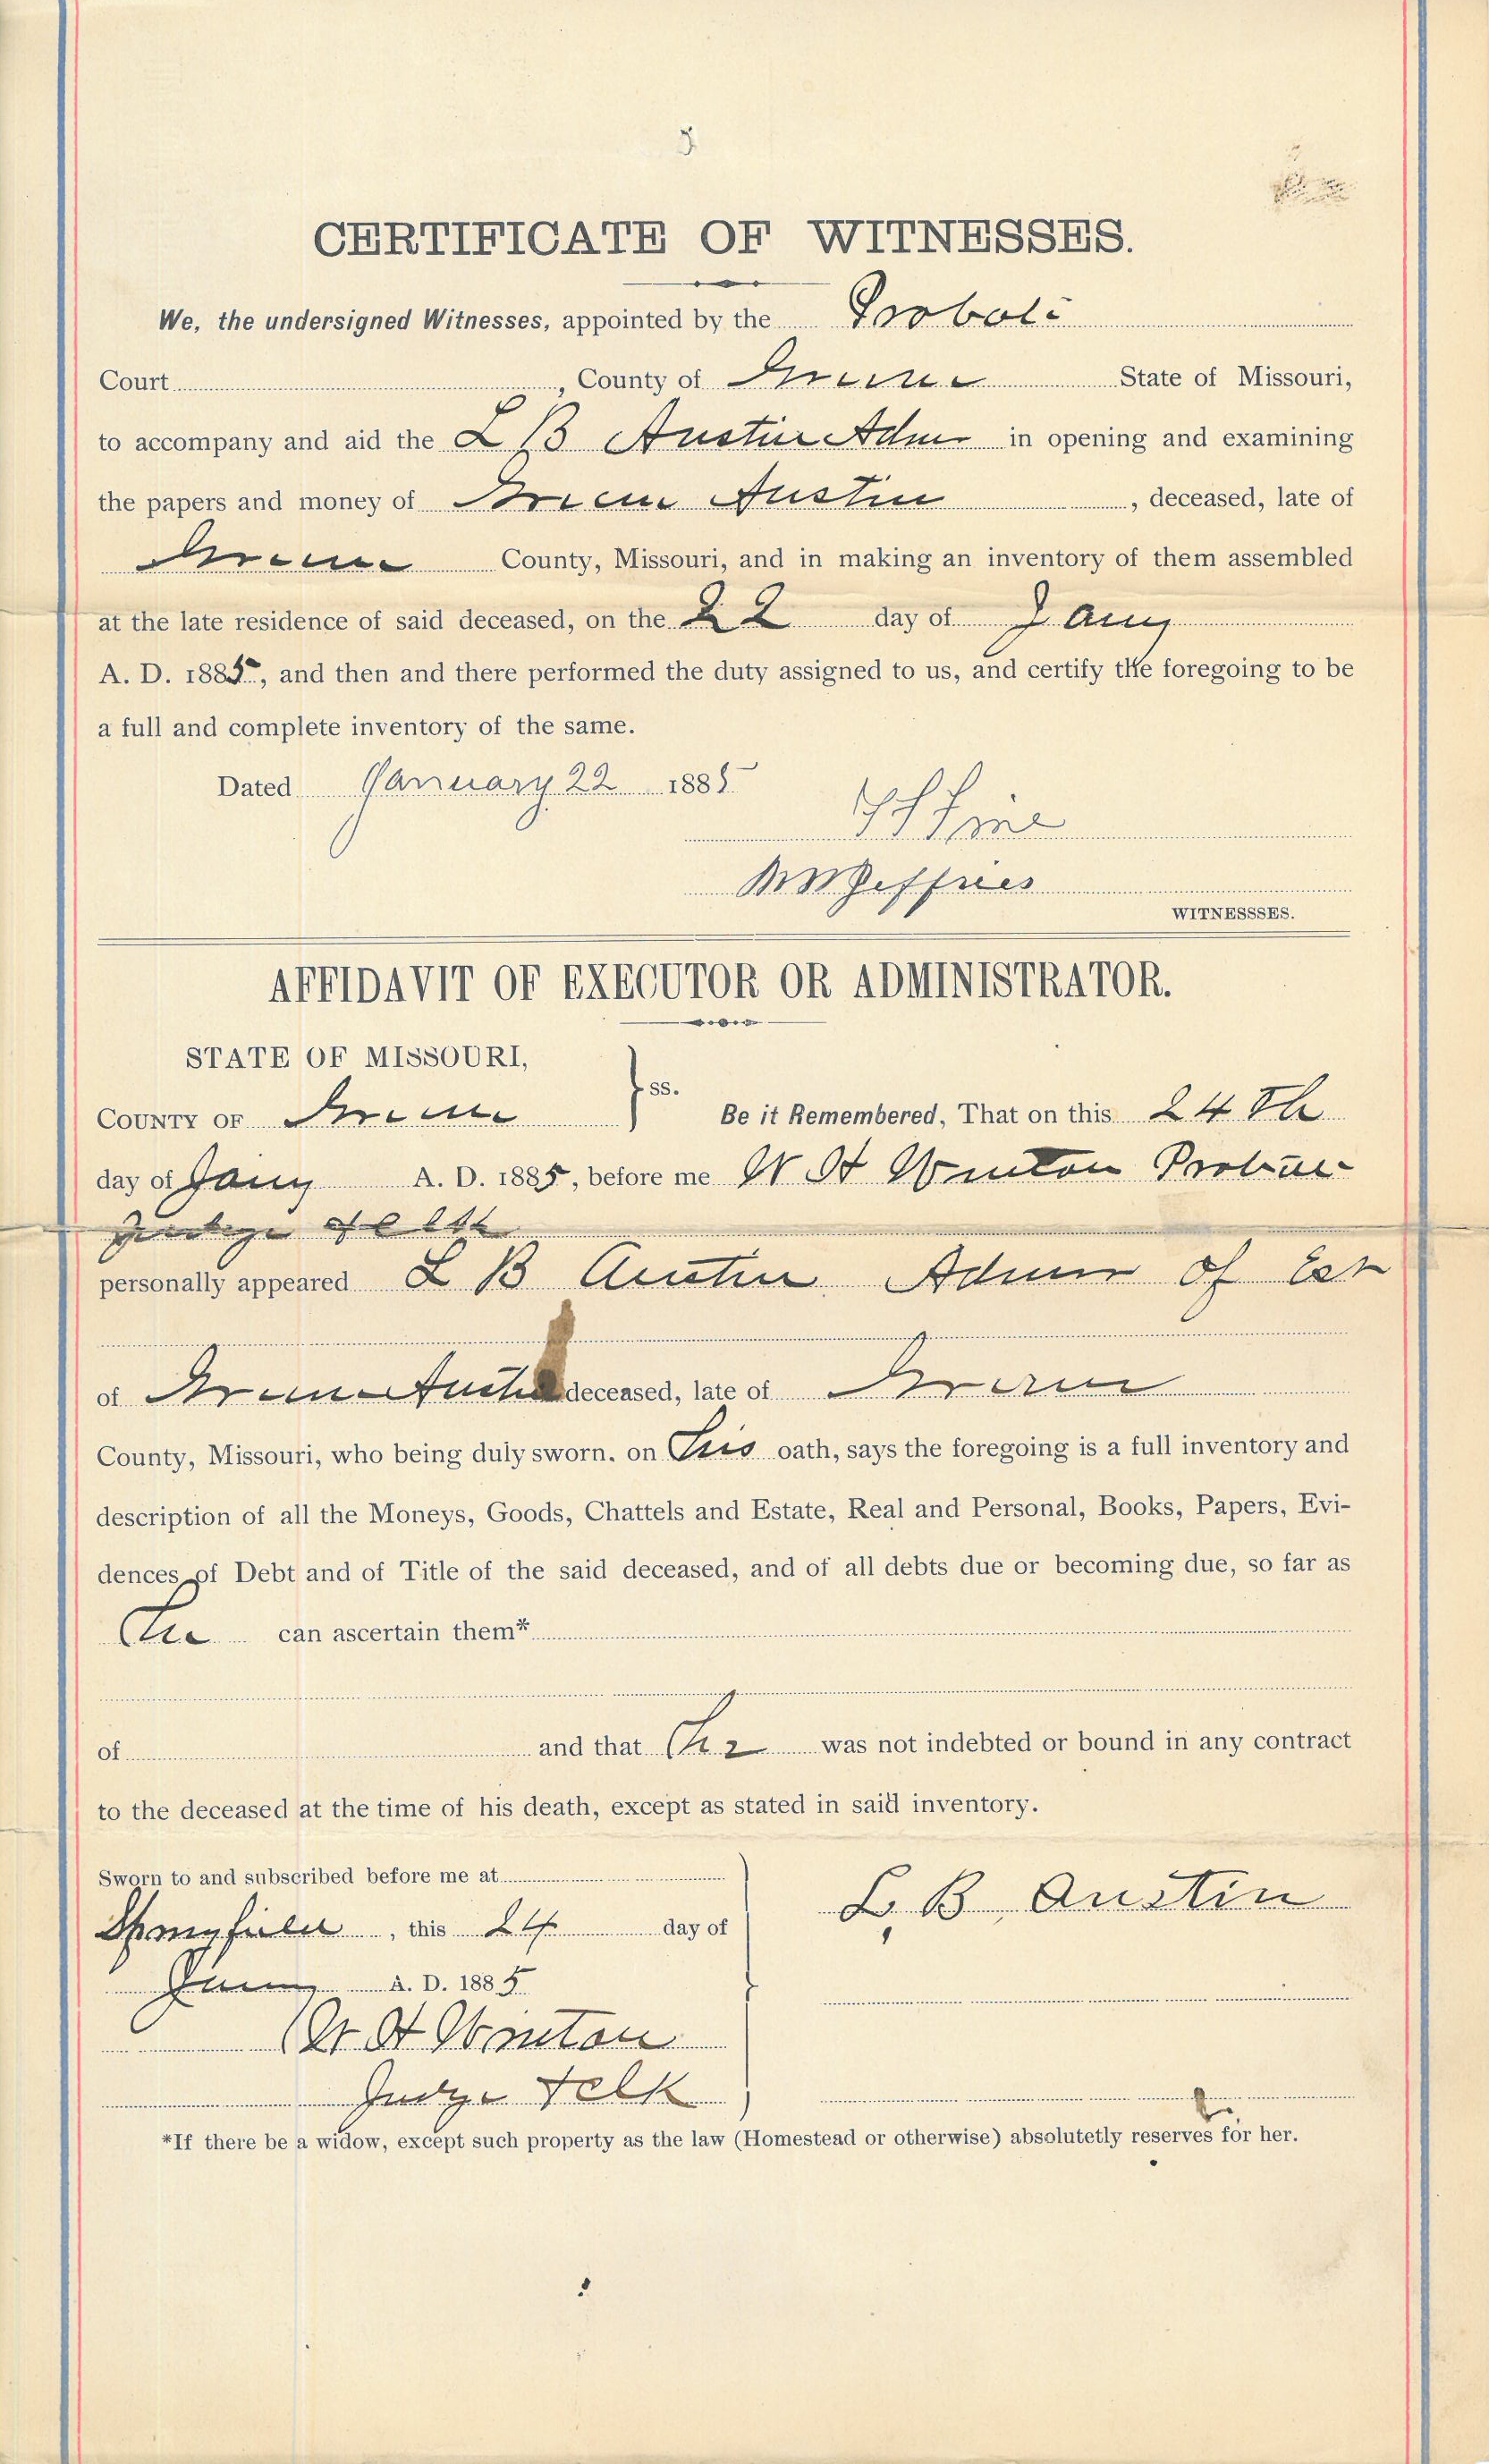 CERTIFICATE OF WITNESSES.
We, the undersigned Witnesses, appointed by the Probate
Court , County of Greene State of Missouri,
to accompany and aid the L B Austin Admr in opening and examining
the papers and money of Green Austin , deceased, late of
Greene County, Missouri, and in making an inventory of them assembled
at the late residence of said deceased, on the 22 day of Jany
A. D. 1885, and then and there performed the duty assigned to us, and certify the foregoing to be
a full and complete inventory of the same.
Dated January 22 1885
Jeffries
WITNESSSES.
AFFIDAVIT OF EXECUTOR OR ADMINISTRATOR.
STATE OF MISSOURI,
ss.
COUNTY OF Greene Be it Remembered, That on this 24th
day of Jany A. D. 1885, before me W H Winton Probate
Judge
personally appeared L B Austin Admr of Est
of Green Austin deceased, late of Greene
County, Missouri, who being duly sworn. on his oath, says the foregoing is a full inventory and
description of all the Moneys, Goods, Chattels and Estate, Real and Personal, Books, Papers, Evi-
dences of Debt and of Title of the said deceased, and of all debts due or becoming due, so far as
he can ascertain them*
of and that he was not indebted or bound in any contract
to the deceased at the time of his death, except as stated in said inventory.
Sworn to and subscribed before me at
Springfield , this 24 day of
Jany A. D. 1885
L. B. Austin
W H Winton
Judge
*If there be a widow, except such property as the law (Homestead or otherwise) absolutetly reserves for her.